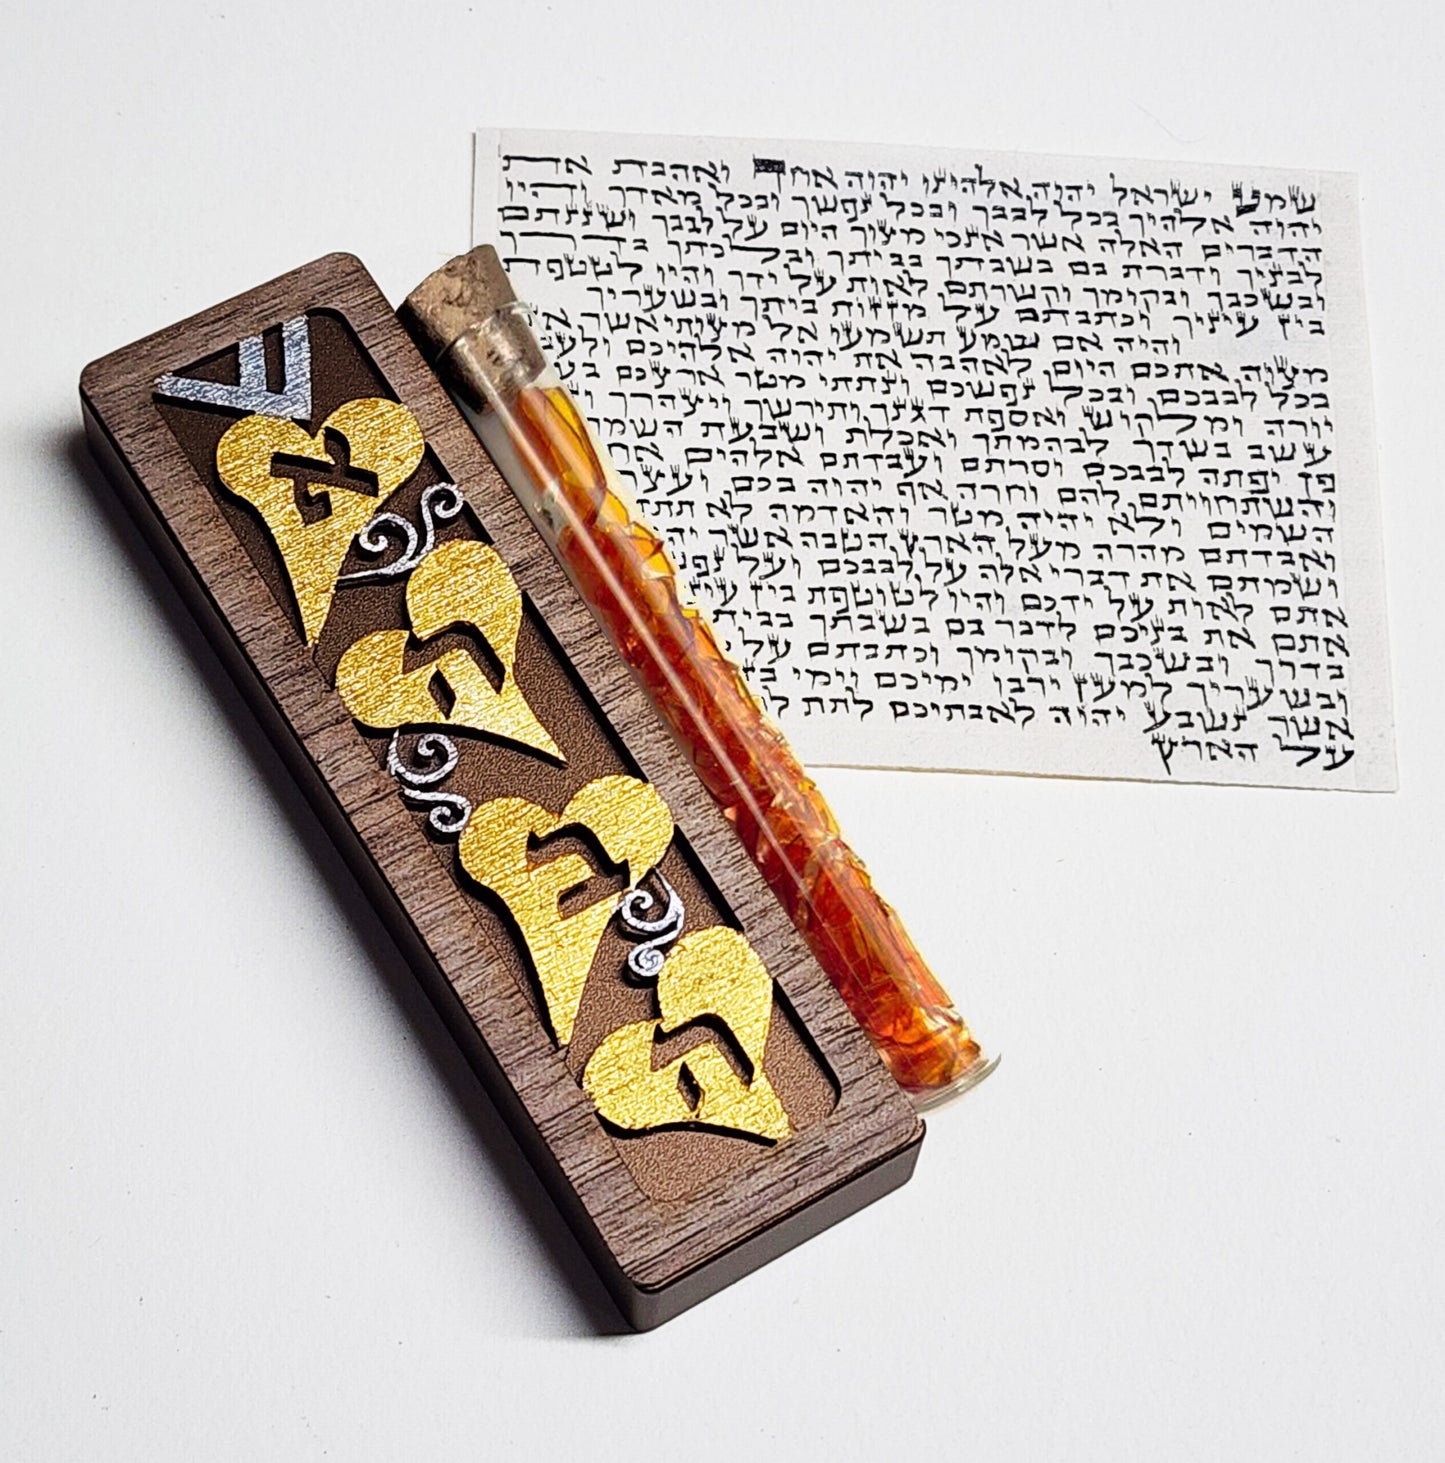 שמע ישראל יהוה אלהינו יהוה אחד ואהבת את
יהוה אלהיך בכל לבבך ובכל נפשך ובכל מאדך והיו
הדברים האלה אשר אנכי מצוך היום על לבבך ושננתם
לבניך ודברת בם בשבתך בביתך ובלכתך בדרך
ובשכבך ובקומך וקשרתם לאות על ידך והיו לטטפת
בין עיניך וכתבתם על מזזות ביתך ובשעריך
והיה אם שמע תשמעו אל מצותי אשר
מצוה אתכם היום לאהבה את יהוה אלהיכם
בכל לבבכם ובכל נפשכם ונתתי מטר ארצכם
יורה ומלקוש ואספת דגנך ותירשך ויצהרך
עשב בשדך לבהמתך ואכלת ושבעת השמר
פן יפתה לבבכם וסרתם ועבדתם אלהים
והשתחויתם להם וחרה אף יהוה בכם ועצר
השמים ולא יהיה מטר והאדמה לא
ואבדתם מהרה מעל הארץ הטבה אשר
ושמתם את דברי אלה על לבבכם ועל
אתם לאות על ידכם והיו לטוטפת בין
אתם את בניכם לדבר בם בשבתך
בדרך ובשכבך ובקומך וכתבתם על
ובשעריך למען ירבו ימיכם וימי
אשר נשבע יהוה לאבתיכם לתת
על הארץ
ש
אהבה